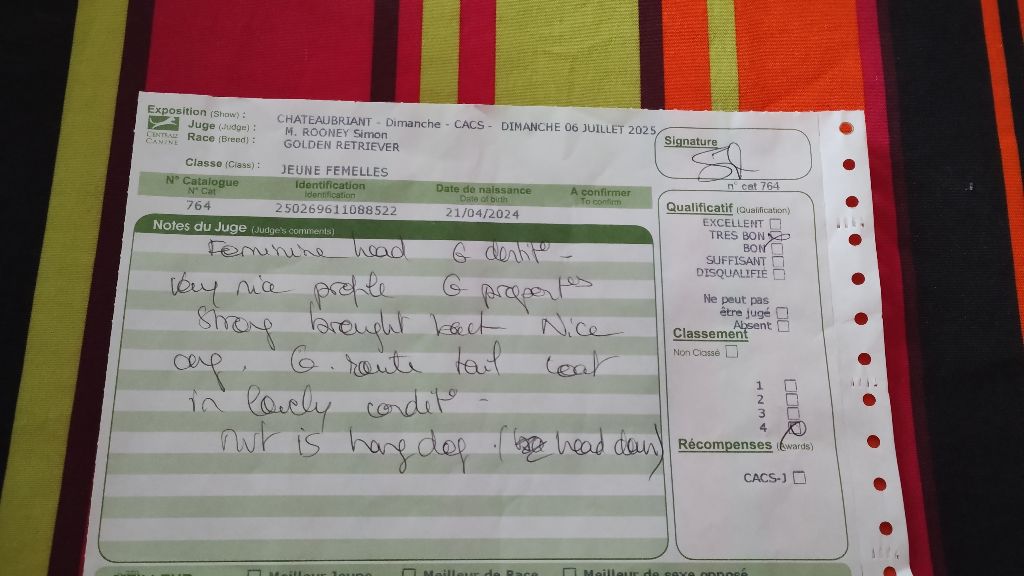 Exposition (Show) :
CHATEAUBRIANT - Dimanche - CACS - DIMANCHE 06 JUILLET 2025
Juge (Judge) :
M. ROONEY Simon
Race (Breed) :
GOLDEN RETRIEVER
CENTRALE
CANINE
Classe (Class) :
JEUNE FEMELLES
N° Catalogue
N° Cat
764
Identification
Identification
250269611088522
Date de naissance
Date of birth
21/04/2024
A confirmer
To confirm
Signature
n° cat 764
Notes du Juge (Judge's comments)
Feminine head G dentit° -
Very nice profile G proport°
Strong brought back Nice
G. route tail coat
in lovely condit° -
is hang dog. (head down)
Qualificatif (Qualification)
EXCELLENT
TRES BON
BON
SUFFISANT
DISQUALIFIÉ
Ne peut pas
être jugé
Absent
Classement
Non Classé
1
2
3
4
Récompenses (Awards)
CACS-J
Meilleur Jeune
Meilleur de Race
Meilleur de sexe opposé